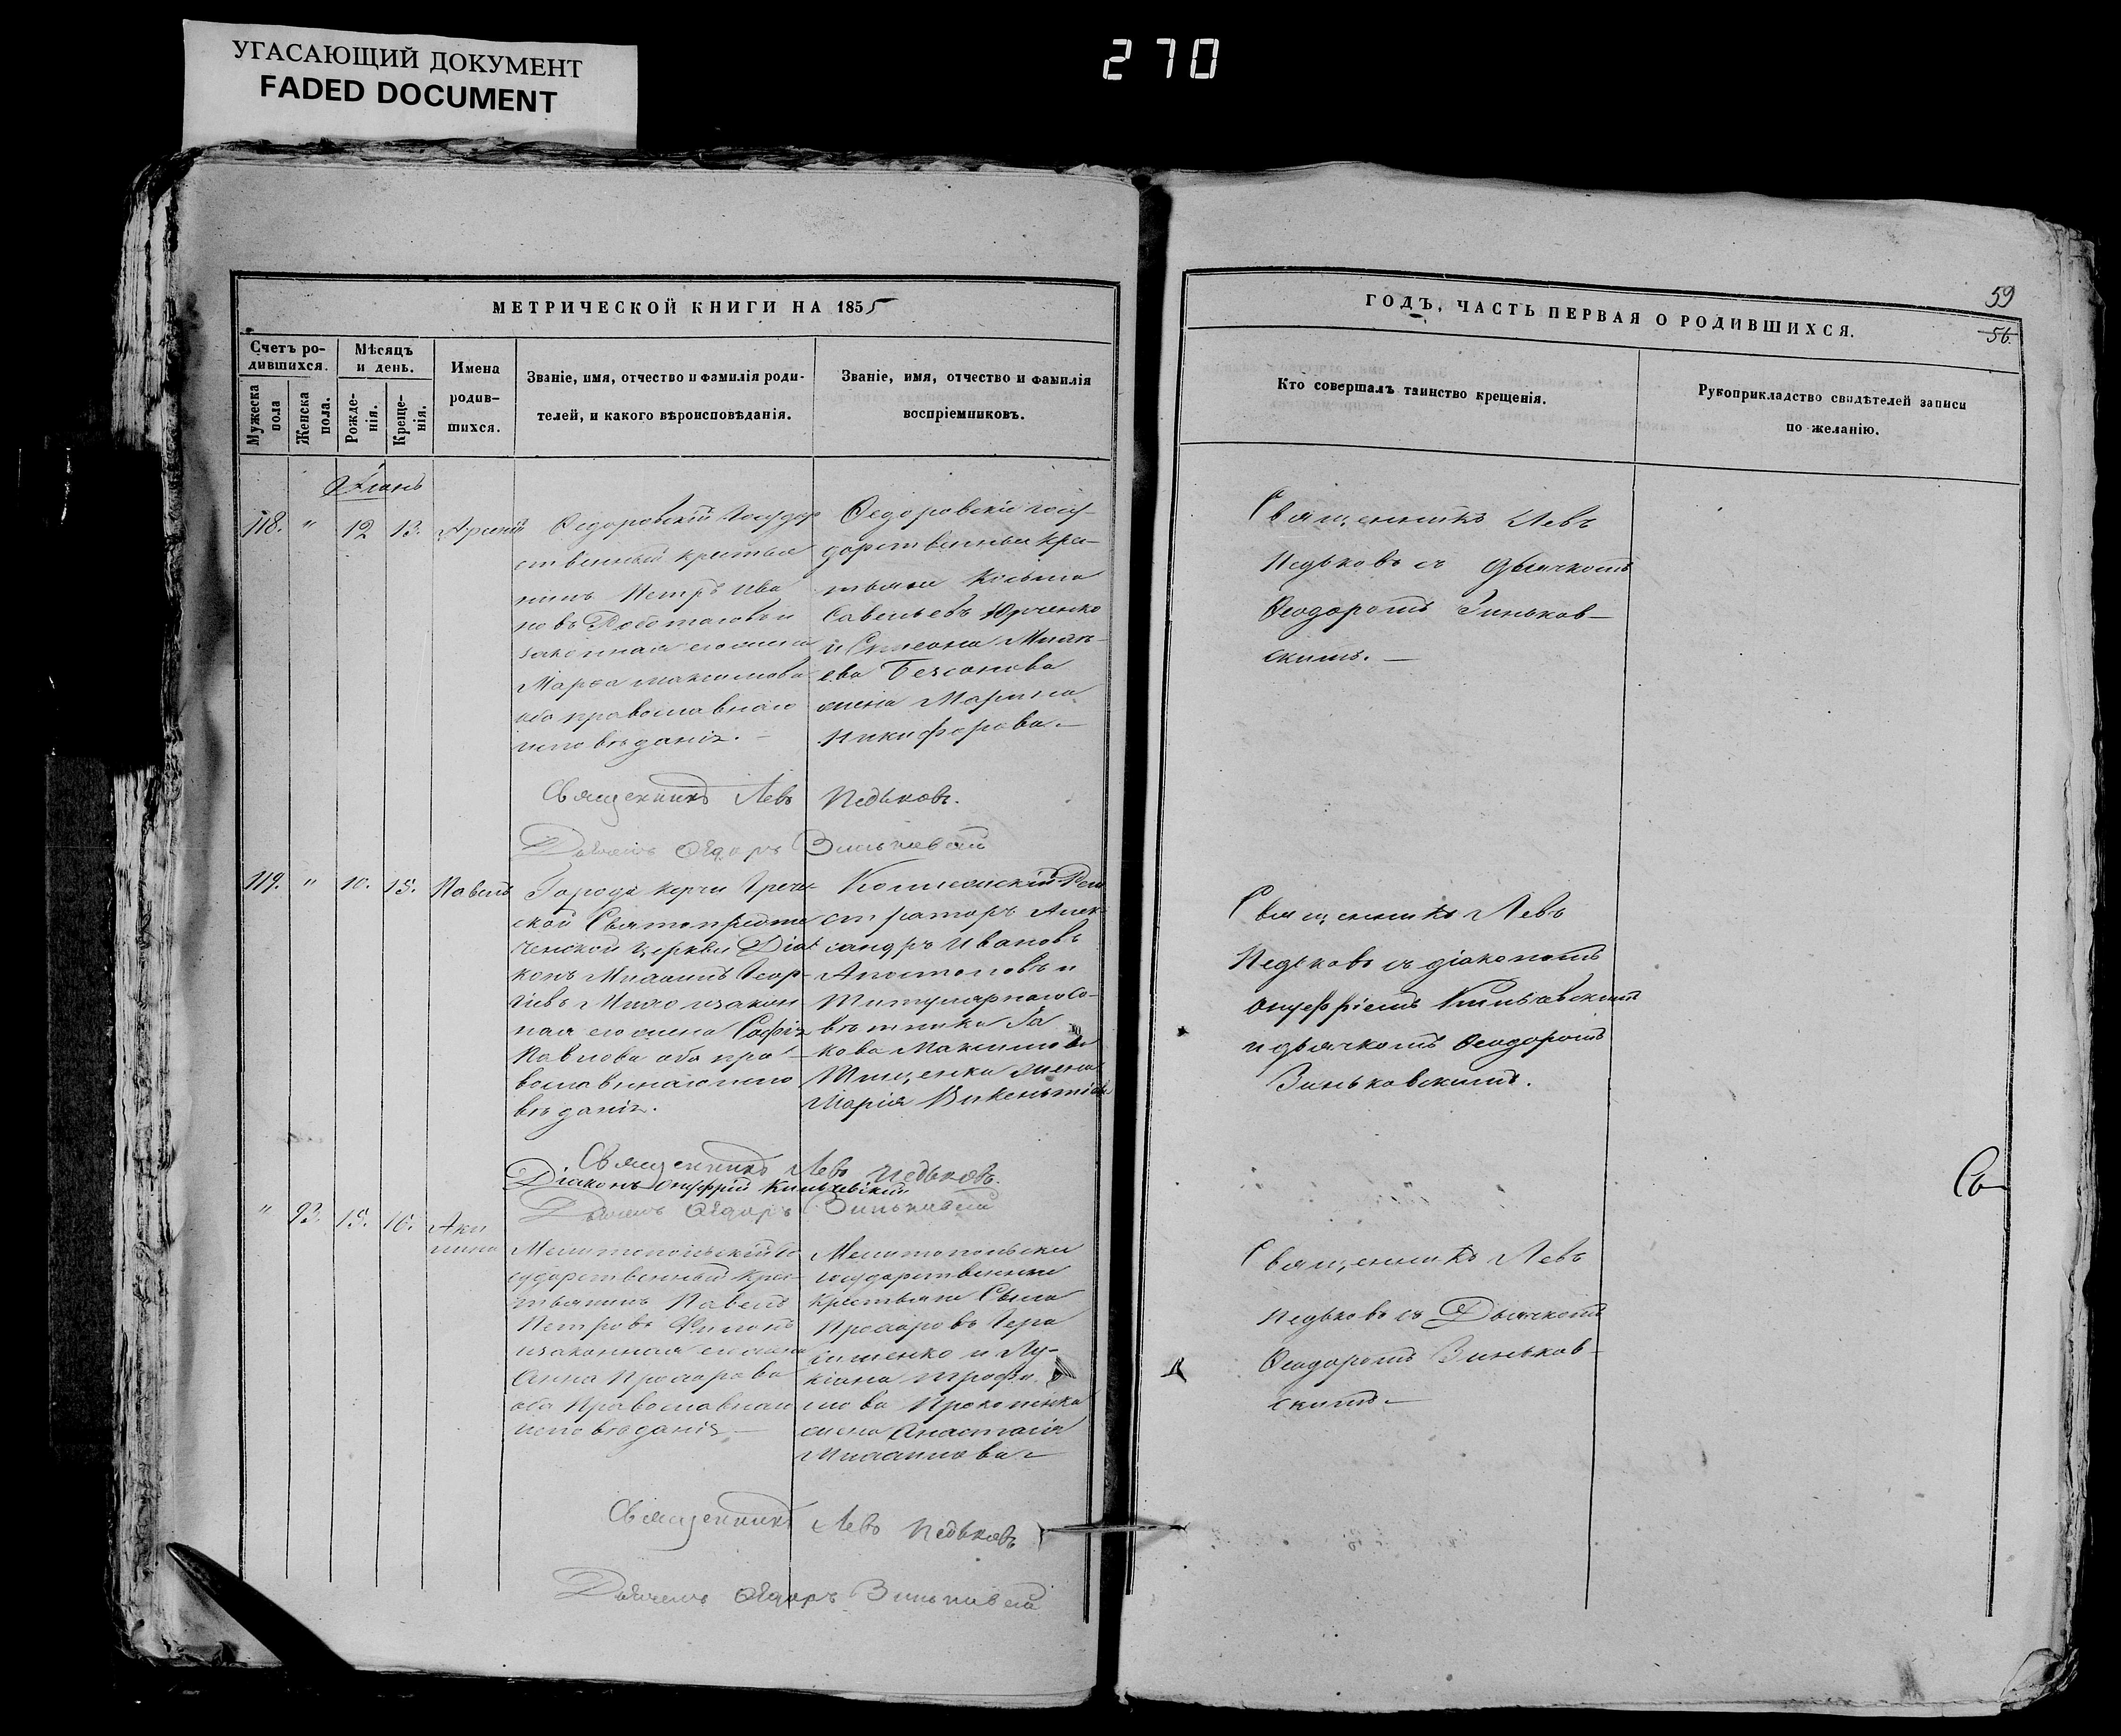 УГАСАЮЩИЙ ДОКУМЕНТ
FADED DOCUMENT
270
МЕТРИЧЕСКОЙ КНИГИ НА 1855
Счетъ ро-
дившихся.
Мужеска
пола
Женска
пола.
Мѣсяцъ
и день.
Рожде-
нія.
Креще-
нія.
Имена
родив-
шихся.
Званіе, имя, отчество и фамилія роди-
телей, и какого вѣроисповѣданія.
Званіе, имя, отчество и фамилія
воспріемниковъ.
118. " 12 13.
Федоровскій Государ
ственный крестья
нинъ Петръ Ива
новъ
законная его жена
Марфа Максимова
оба православнаго
исповѣданія.
Федоровскіе госу-
дарственные кре-
стьяне Козьма
Савельевъ Юрченко
и Симеона
жена Марина
Никифорова
Священникъ Левъ Педьковъ.
Дьячекъ Федоръ Зиньковскій
119. " 10. 15. Павелъ
Города Керчи Грече
ской
ченской церкви Діа
конъ Михаилъ Геор-
гіевъ
ная его жена Софія
Павлова оба пра-
вославнаго испо
вѣданія.
Коллежскій Реги
страторъ Алек
сандръ Ивановъ
Апостоловъ и
Титулярнаго Со-
вѣтника Іа
кова Максимова
Тищенки жена
Марія Викентіева
Священникъ Левъ Педьковъ.
Діаконъ Онуфрій
Дьячекъ Федоръ Зиньковскій
" 93. 15. 16. Аки
лина
Мелитопольскій го
сударственный кре-
стьянинъ Павелъ
Петровъ
и законная его жена
Анна
оба Православнаго
исповѣданія
Мелитопольскіе
государственные
крестьяне
Гера
сименко и Лу-
кіана Трофи
мова Прокопенка
жена Анастасія
Михаилова
Священникъ Левъ Педьковъ
Дьячекъ Федоръ Зиньковскій
ГОДЪ, ЧАСТЬ ПЕРВАЯ О РОДИВШИХСЯ.
59
56.
Кто совершалъ таинство крещенія.
Рукоприкладство свидѣтелей записи
по желанію.
Священникъ Левъ
Педьковъ съ Дьячкомъ
Феодоромъ Зиньков-
скимъ.
Священникъ Левъ
Педьковъ съ діакономъ
Онуфріемъ
и дьячкомъ Феодоромъ
Зиньковскимъ.
Священникъ Левъ
Педьковъ съ Дьячкомъ
Феодоромъ Зиньков-
скимъ